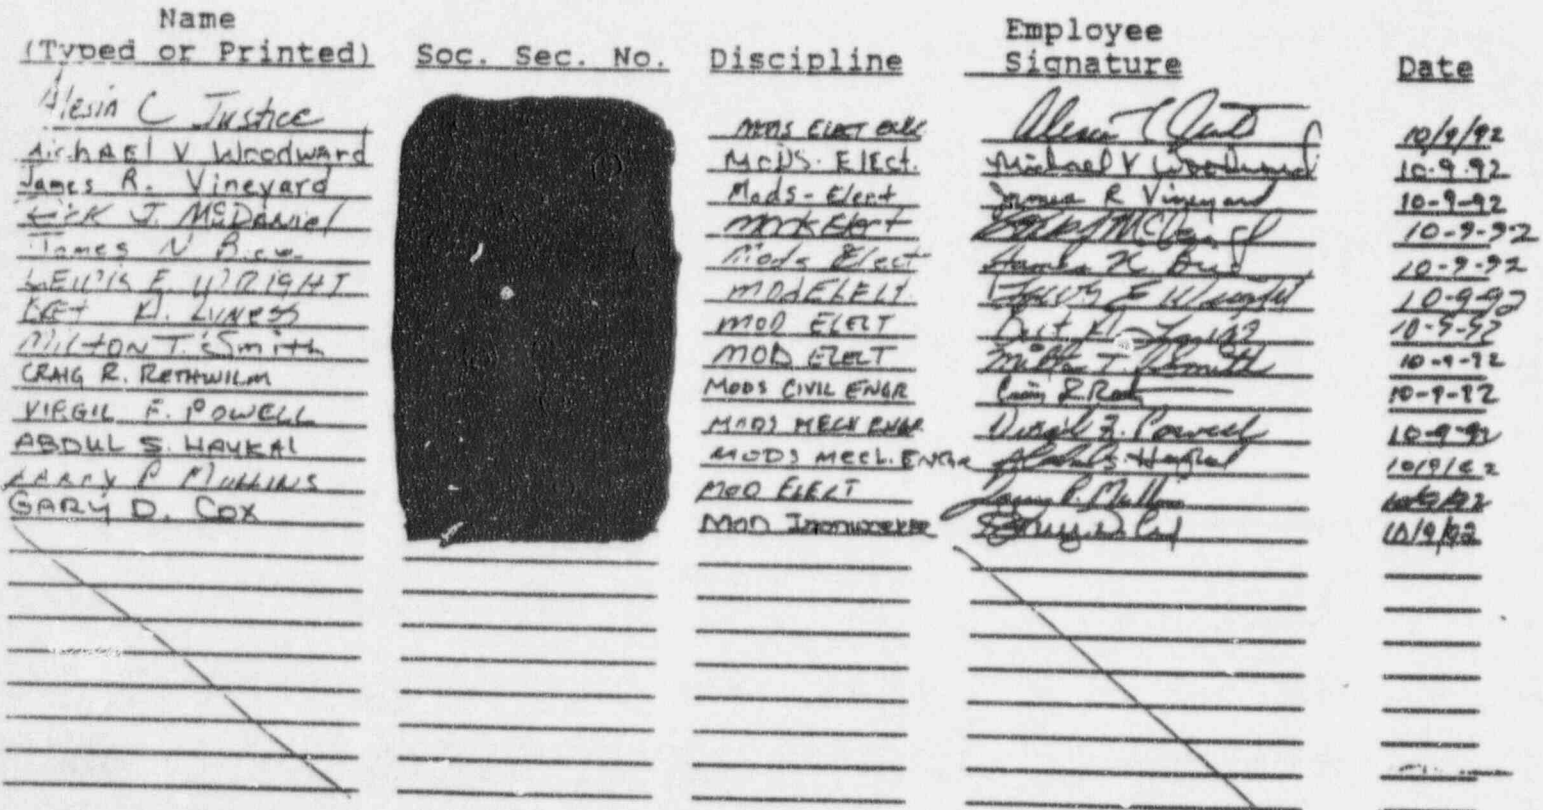 Name Employee
(Typed or Printed) Soc. Sec. No. Discipline Signature Date
Alesia C Justice MODS ELECT 10/9/92
Michael V Woodward MODS. Elect. Michael V Woodward 10-9-92
James R. Vineyard Mods-Elect James R Vineyard 10-9-92
J. McDaniel Elect 10-9-92
James N Mods Elect James 10-9-92
LEWIS E. WRIGHT MOD ELECT Lewis E Wright 10-9-92
MOD ELECT 10-9-92
MILTON T. Smith MOD ELECT Milton T. Smith 10-9-92
CRAIG R. RETHWILM MODS CIVIL ENGR Craig R. 10-9-92
VIRGIL F. POWELL MODS MECH ENGR Virgil F. Powell 10-9-92
ABDUL S. HAYKAL MODS MECH. ENGR Abdul S. Haykal 10/9/92
LARRY P MULLINS MOD ELECT Larry P. Mullins 10/9/92
GARY D. COX MOD Ironworker Gary D Cox 10/9/92